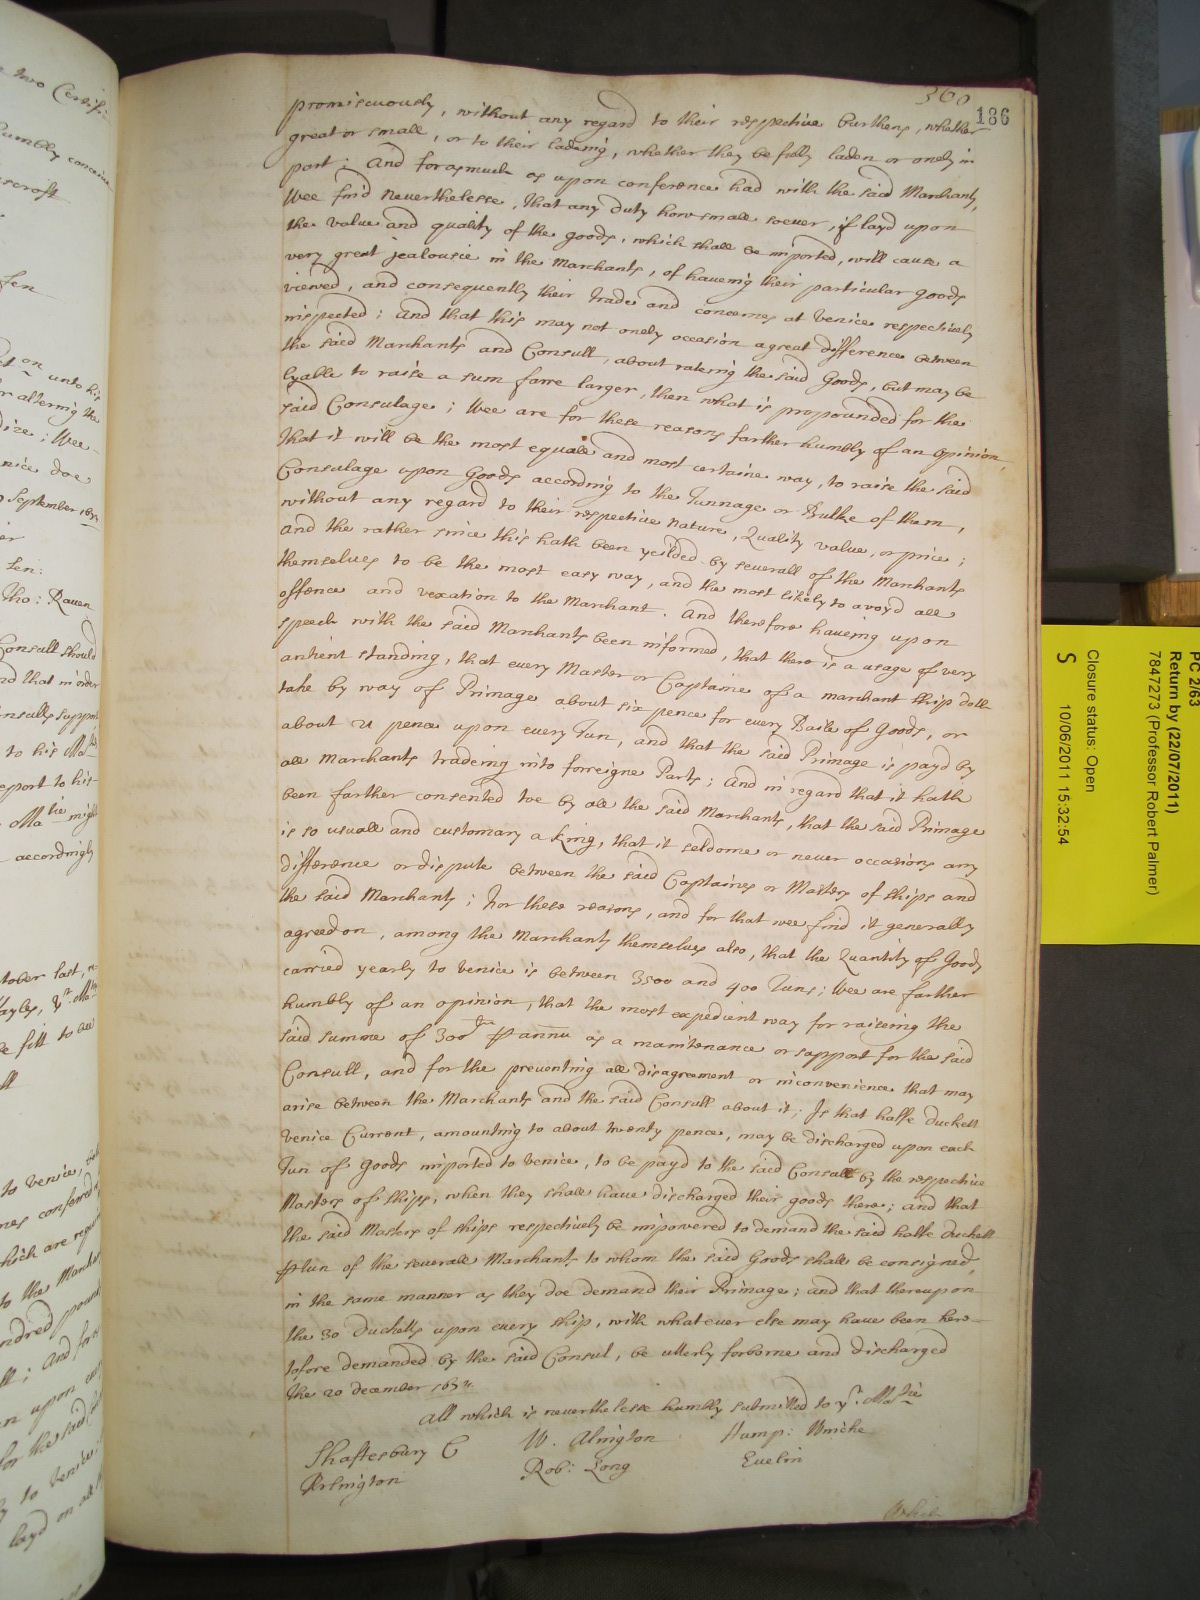 360
186
promiscuously, without any regard to their respective burthens, whether
great or small, or to their ladeing, whether they be fully laden or onely in
part; And forasmuch as upon conference had with the said Marchants,
Wee find neverthelesse, that any duty how small soever, if layd upon
the value and quality of the goods, which shall be imported, will cause a
very great jealousie in the Marchants, of haueing their particular goods
viewed, and consequently their trade and concernes at Venice respectively
inspected; And that this may not onely occasion a great difference between
the said Marchants and Consull, about rateing the said Goods, but may be
lyable to raise a sum farre larger, then what is propounded for the
said Consulage; Wee are for these reasons farther humbly of an opinion,
That it will be the most equall and most certaine way, to raise the said
Consulage upon Goods according to the Tunnage or Bulke of them,
without any regard to their respective nature, Quality value, or price;
And the rather since this hath been yeilded by severall of the Marchants
themselues to be the most easy way, and the most likely to avoyd all
offence and vexation to the Marchant. And therefore haueing upon
speech with the said Marchants been informed, that there is a usage of very
antient standing, that every Master or Captaine of a marchant ship doth
take by way of Primage about six pence for every Baile of Goods, or
about 21 pence upon every Tun, and that the said Primage is payd by
all Marchants tradeing into forreigne Parts; And in regard that it hath
been farther consented toe by all the said Marchants, that the said Primage
is so usuall and customary a thing, that it seldome or never occasions any
difference or dispute between the said Captaines or Masters of ships and
the said Marchants; For these reasons, and for that wee find it generally
agreed on, among the Marchants themselues also, that the Quantity of Goods
carried yearly to Venice is between 3500 and 400 Tuns; Wee are farther
humbly of an opinion, that the most expedient way for raiseing the
said summe of 300 li p annu as a maintenance or support for the said
Consull, and for the preventing all disagreement or inconvenience that may
arise between the Marchants and the said Consull about it; Is that halfe duckett
Venice Current, amounting to about twenty pence, may be discharged upon each
Tun of Goods imported to Venice, to be payd to the said Consull by the respective
Masters of ships, when they shall haue discharged their goods there; and that
the said Masters of ships respectively be impowered to demand the said halfe duckett
p tun of the severall Marchants to whom the said Goods shall be consigned,
in the same manner as they doe demand their Primage; and that thereupon
the 30 Ducketts upon every ship, with what ever else may have been here-
tofore demanded by the said Consul, be utterly forborne and discharged
The 20 december 1672.
All which is neverthelesse humbly submitted to yr. Matie
Shaftesbury C W. Alington Hump: Winche
Arlington Rob: Long Evelin
PC 2/63
Return by (22/07/2011)
7847273 (Professor Robert Palmer)
Closure status: Open
S 10/06/2011 15:32:54